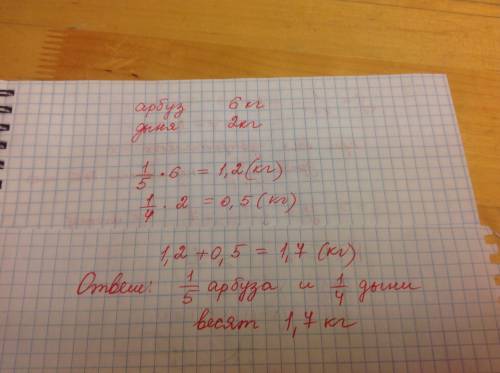 арбуз 6 кг
дыня 2кг
1/5 · 6 = 1,2 (кг)
1/4 · 2 = 0,5 (кг)
1,2 + 0,5 = 1,7 (кг)
Ответ: 1/5 арбуза и 1/4 дыни
весят 1,7 кг